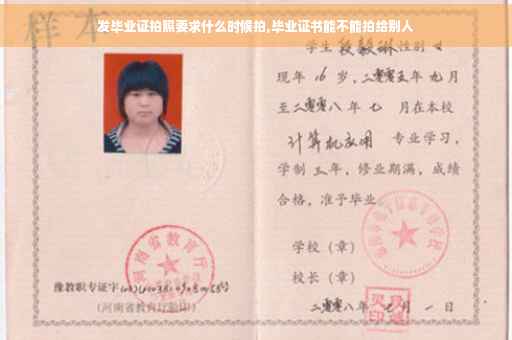 发毕业证拍照要求什么时候拍,毕业证书能不能拍给别人
样本
学生段毅琳性别女
现年16岁,二零零五年九月
至二零零八年七月在本校
计算机应用 专业学习,
学制三年,修业期满,成绩
合格,准予毕业
学校(章)
校长(章)
二零零八年七月一日
河南省教育厅
豫教职专证字
(河南省教育厅验印)